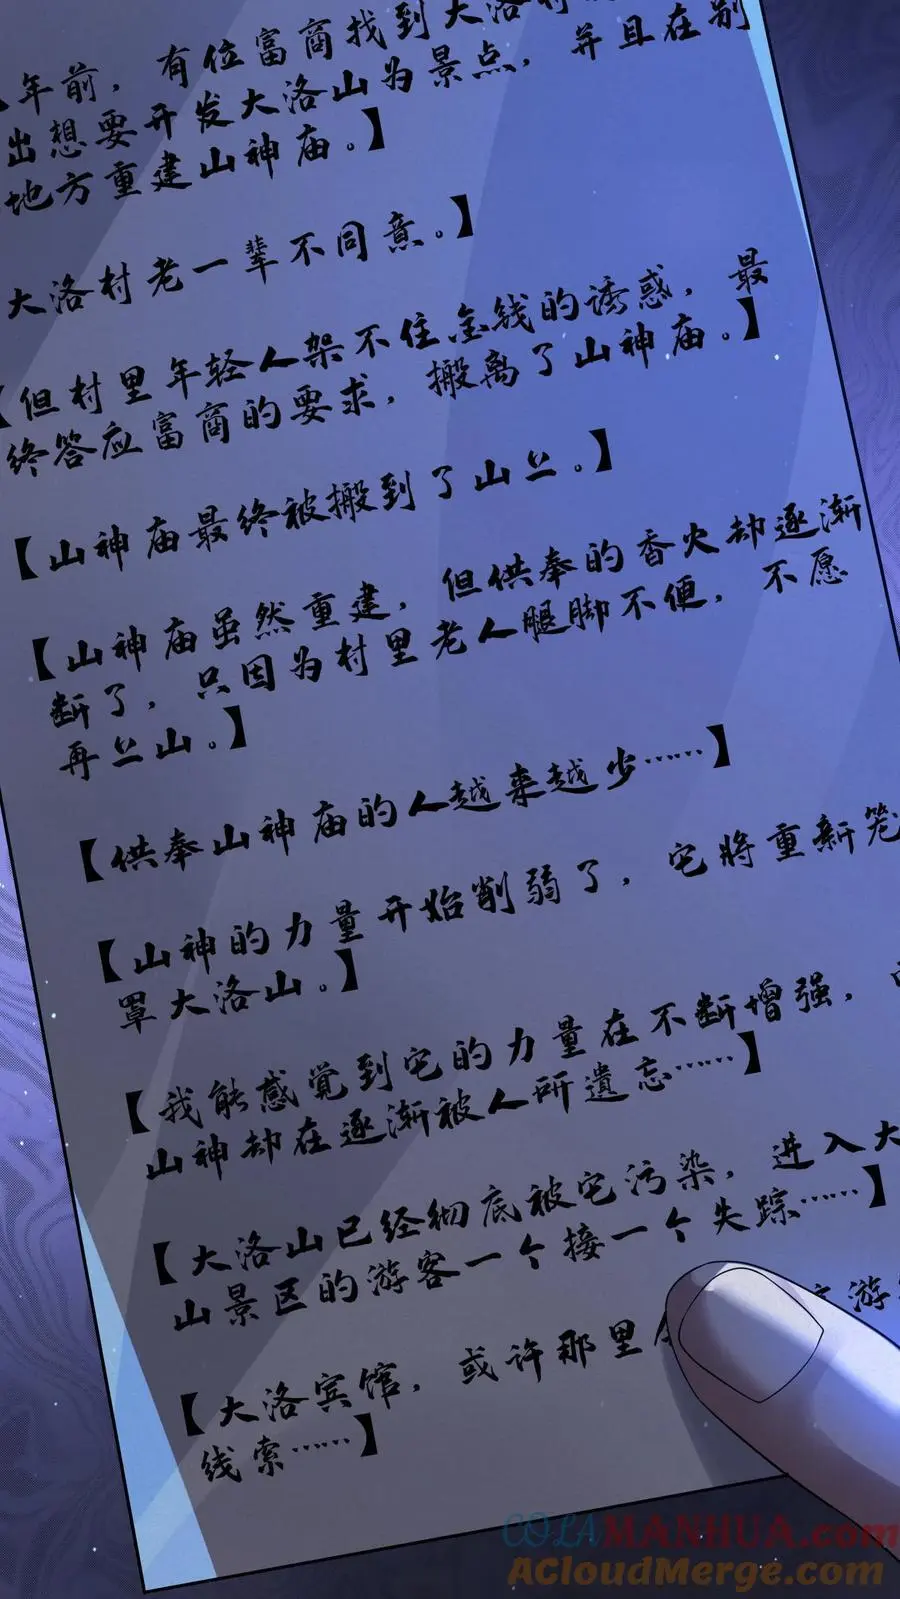 年前，有位富商找到大洛村
出想要开发大洛山为景点，并且在别
地方重建山神庙。】
大洛村老一辈不同意。】
【但村里年轻人架不住金钱的诱惑，最
终答应富商的要求，搬离了山神庙。】
【山神庙最终被搬到了山上。】
【山神庙虽然重建，但供奉的香火却逐渐
断了，只因为村里老人腿脚不便，不愿
再上山。】
【供奉山神庙的人越来越少……】
【山神的力量开始削弱了，它将重新笼
罩大洛山。】
【我能感觉到它的力量在不断增强，而
山神却在逐渐被人所遗忘……】
【大洛山已经彻底被它污染，进入大
山景区的游客一个接一个失踪……】
【大洛宾馆，或许那里 游
线索……】
COLAMANHUA.com
ACloudMerge.com